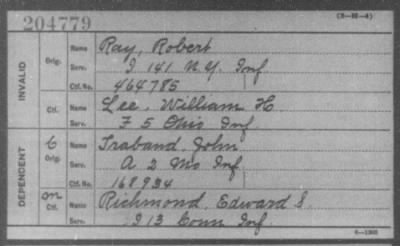 204779
(3-10-4)
INVALID
Orig.
Name Ray, Robert
Serv. I 141 N.Y. Inf
Ctf. No. 464785
Ctf.
Name Lee, William H
Serv. F 5 Ohio Inf
DEPENDENT
C
Orig.
Name Traband, John
Serv. A 2 Mo Inf
Ctf. No. 168934
Ctf.
Name Richmond, Edward S.
Serv. I 13 Conn Inf.